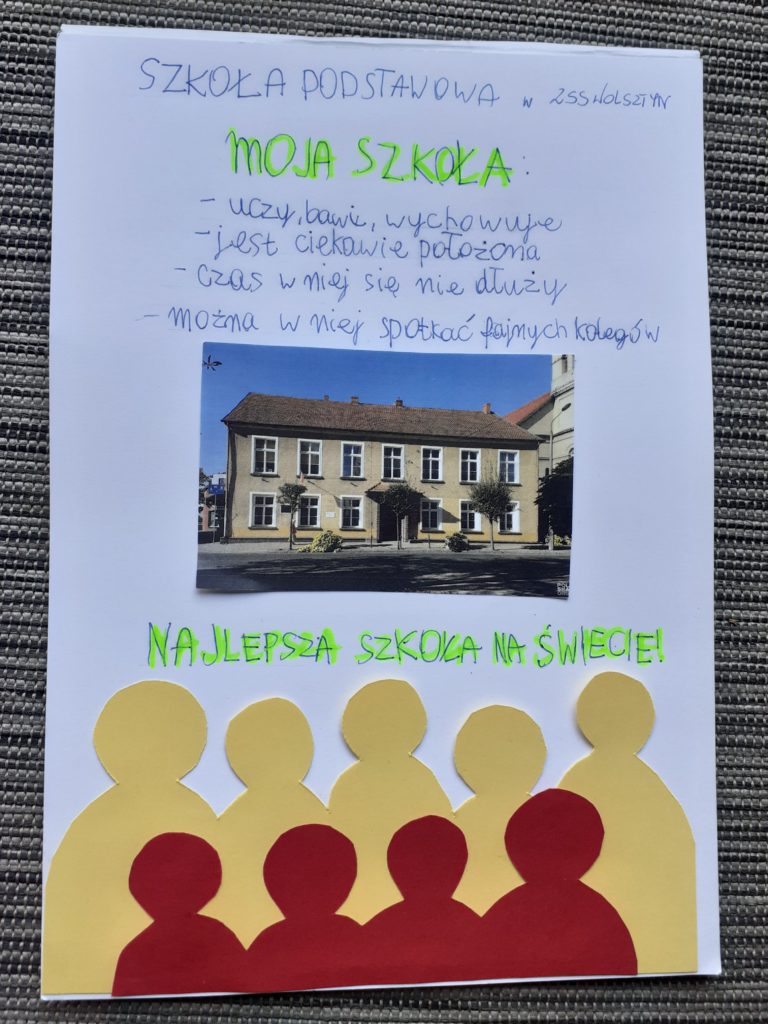 SZKOŁA PODSTAWOWA w ZSSWOLSZTYN
MOJA SZKOŁA:
- uczy, bawi, wychowuje
- jest ciekawie położona
- czas w niej się nie dłuży
- można w niej spotkać fajnych kolegów
NAJLEPSZA SZKOŁA NA ŚWIECIE!